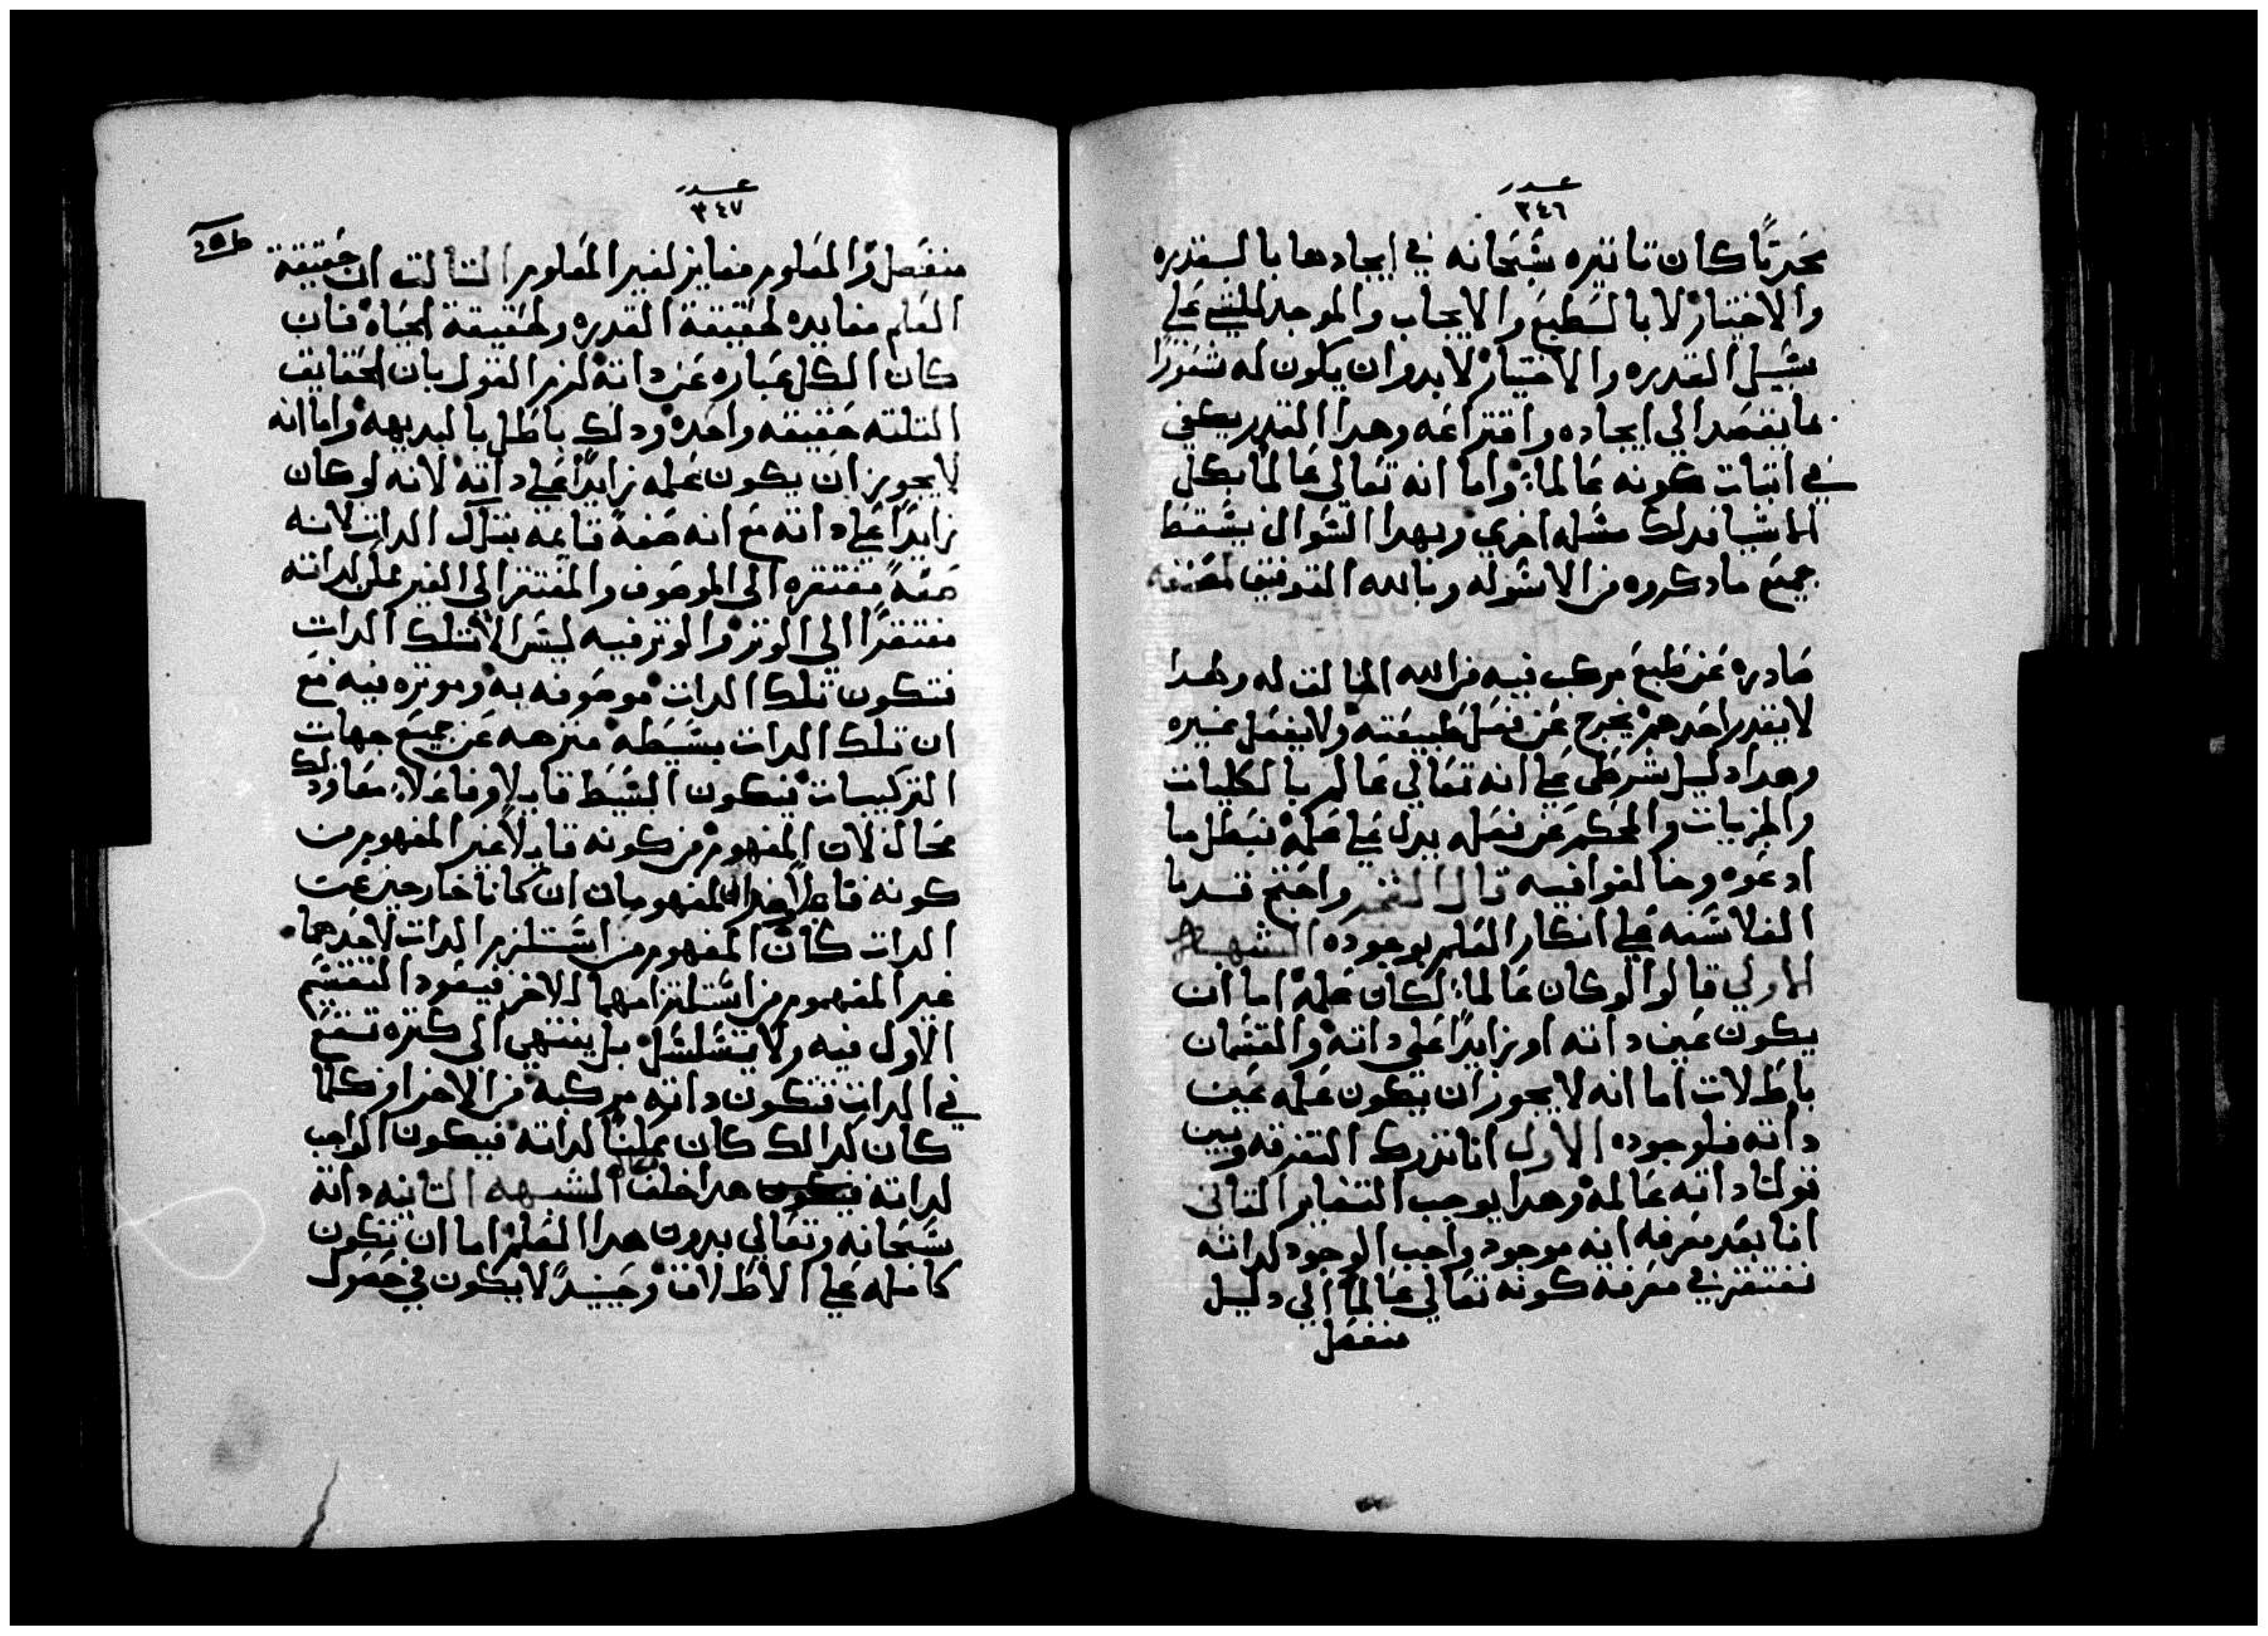 عدد
٣٤٦
محدثًا كان تاثيره سبحانه في ايجادها بالقدره
والاختيار لا بالطبع والايجاب والموجد للشي علي
سبيل القدره والاختيار لابد وان يكون له شعورًا
بما يقصد الي ايجاده واختراعه وهدا القدر يكفي
في اتبات كونه عالما: واما انه تعالي عالمًا بكل
الاشيا فدلك مسله اخري وبهدا السوال يسقط
جميع مادكروه من الاسوله وبالله التوفيق
صادره عن طبع مركب فيه من الله الخالق له ولهدا
لايقدر احدهم يخرج عن فعل طبيعته ولايفعل غيره
وهدا دليل شرطي علي انه تعالي عالم بالكليات
والجزيات والمحكم عن فعله يدل علي علمه فبطل ما
ادعوه وخالفوا فيه قال المفخر واحتج قدما
الفلاسفه علي انكار العلم بوجوده الشبهه
الاولي قالوا لو كان عالما: لكان علمه اما ان
يكون عين داته او زايدًا علي داته والقسمان
باطلان اما انه لا يجوز ان يكون علمه عين
داته فلوجوده الاول انا ندرك التفرقه وبين
قولنا داته عالمه وهدا يوجب التغاير التاني
انا بعد معرفه انه موجود واجب الوجود لداته
نفتقر في معرفه كونه تعالي عالمًا الي دليل
منفصل
عدد
٣٤٧
منفصل والمعلوم مغاير لغير المعلوم التالت ان حقيقة
العلم مغايره لحقيقة القدره ولحقيقة الحياه فان
كان الكل عباره عن داته لزم القول بان الحقايق
التلته حقيقه واحده ودلك باطل بالبديهه واما انه
لايجوز ان يكون علمه زايدًا علي داته لانه لو كان
زايدًا علي داته مع انه صفةً قايمه بتلك الدات لانه
صفةً مفتقره الي الموصوف والمفتقر الي الغير ممكن لداته
مفتقرًا الي الموتر والموتر فيه ليس الا تلك الدات
فتكون تلك الدات موصوفه به وموتره فيه مع
ان تلك الدات بسيطه منزهه عن جميع جهات
التركيبات فيكون البسيط قابلا وفاعلا: معًا ودلك
محال لان المفهوم من كونه قابلًا غير المفهوم من
كونه فاعلًا فهدان المفهومان ان كانا خارجين عن
الدات كان المفهوم من استلزم الدات لاحدهما
غير المفهوم من استلزامهما للاخر فيعود التقسيم
الاول فيه ولا يتسلسل بل ينتهي الي كتره تقع
في الدات فتكون داته مركبة من الاجزا وكلما
كان كدالك كان ممكنًا لداته فيكون الواجب
لداته هدا خلف الشبهه التانيه داته
سبحانه وتعالي بدون هدا العلم اما ان تكون
كامله علي الاطلاق وحينيدً لا يكون في حصول